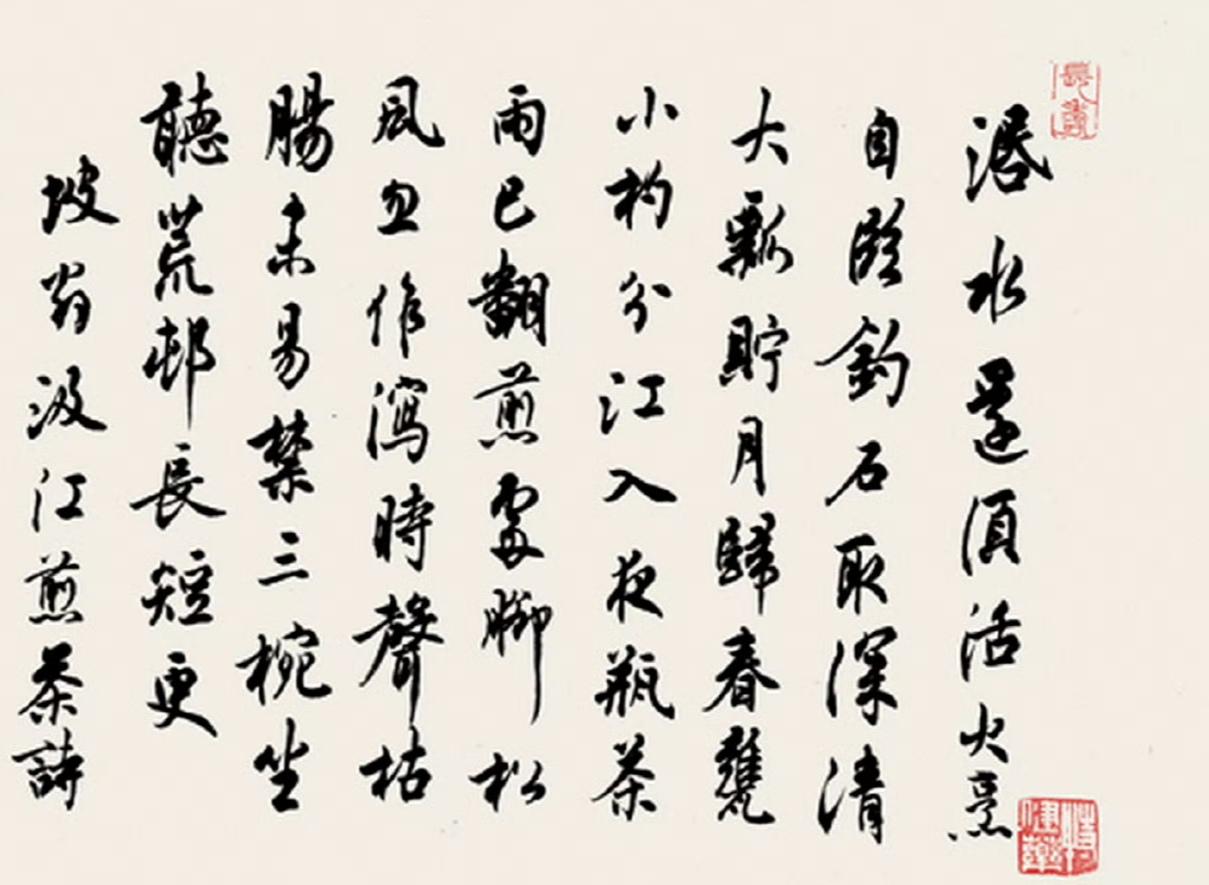 長壽
水還須活火烹
自臨釣石取深清
大瓢貯月歸春甕
小杓分江入夜瓶茶
雨已翻煎處脚松
風忽作瀉時聲枯
腸未易禁三椀坐
聽荒邨長短更
坡翁汲江煎茶詩